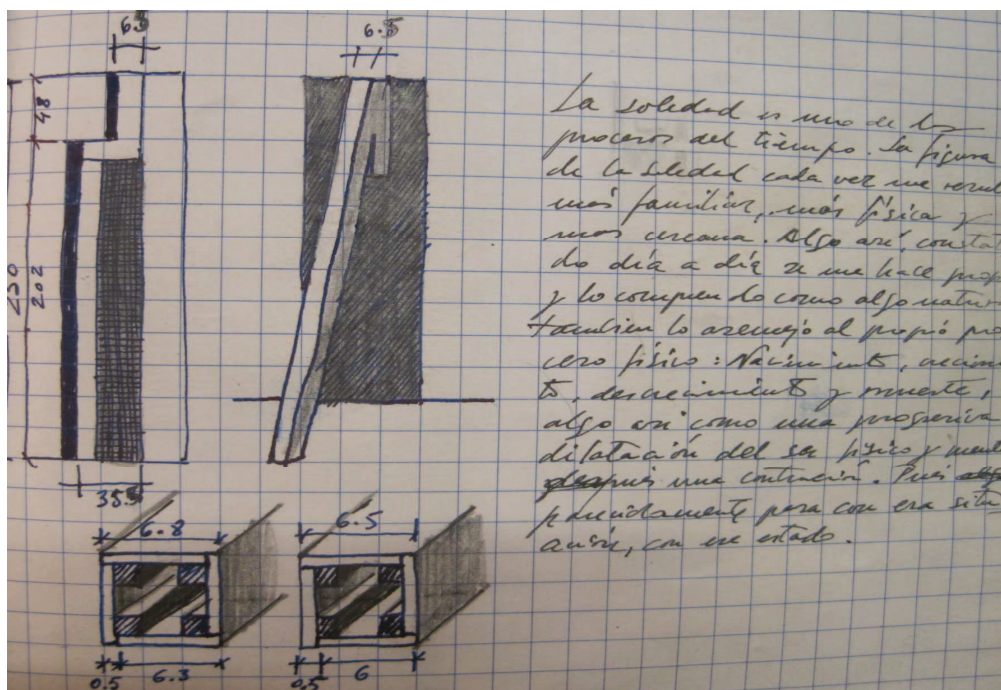 6.5
6.5
48
250
202
35.5
6.8
6.5
0.5
6.3
0.5
6
La soledad es uno de los
procesos del tiempo. La figura
de la soledad cada vez me
más familiar, más física y
más cercana. Algo así, consta
do día a día se me hace
y lo comprendo como algo
tambien lo asemejo al propio pro
ceso físico: Nacimiento,
to, decrecimiento y muerte,
algo asi como una progresiva
dilatación del ser físico y
después una contracción. Pues
parecidamente pasa con esa situ
ación, con ese estado.